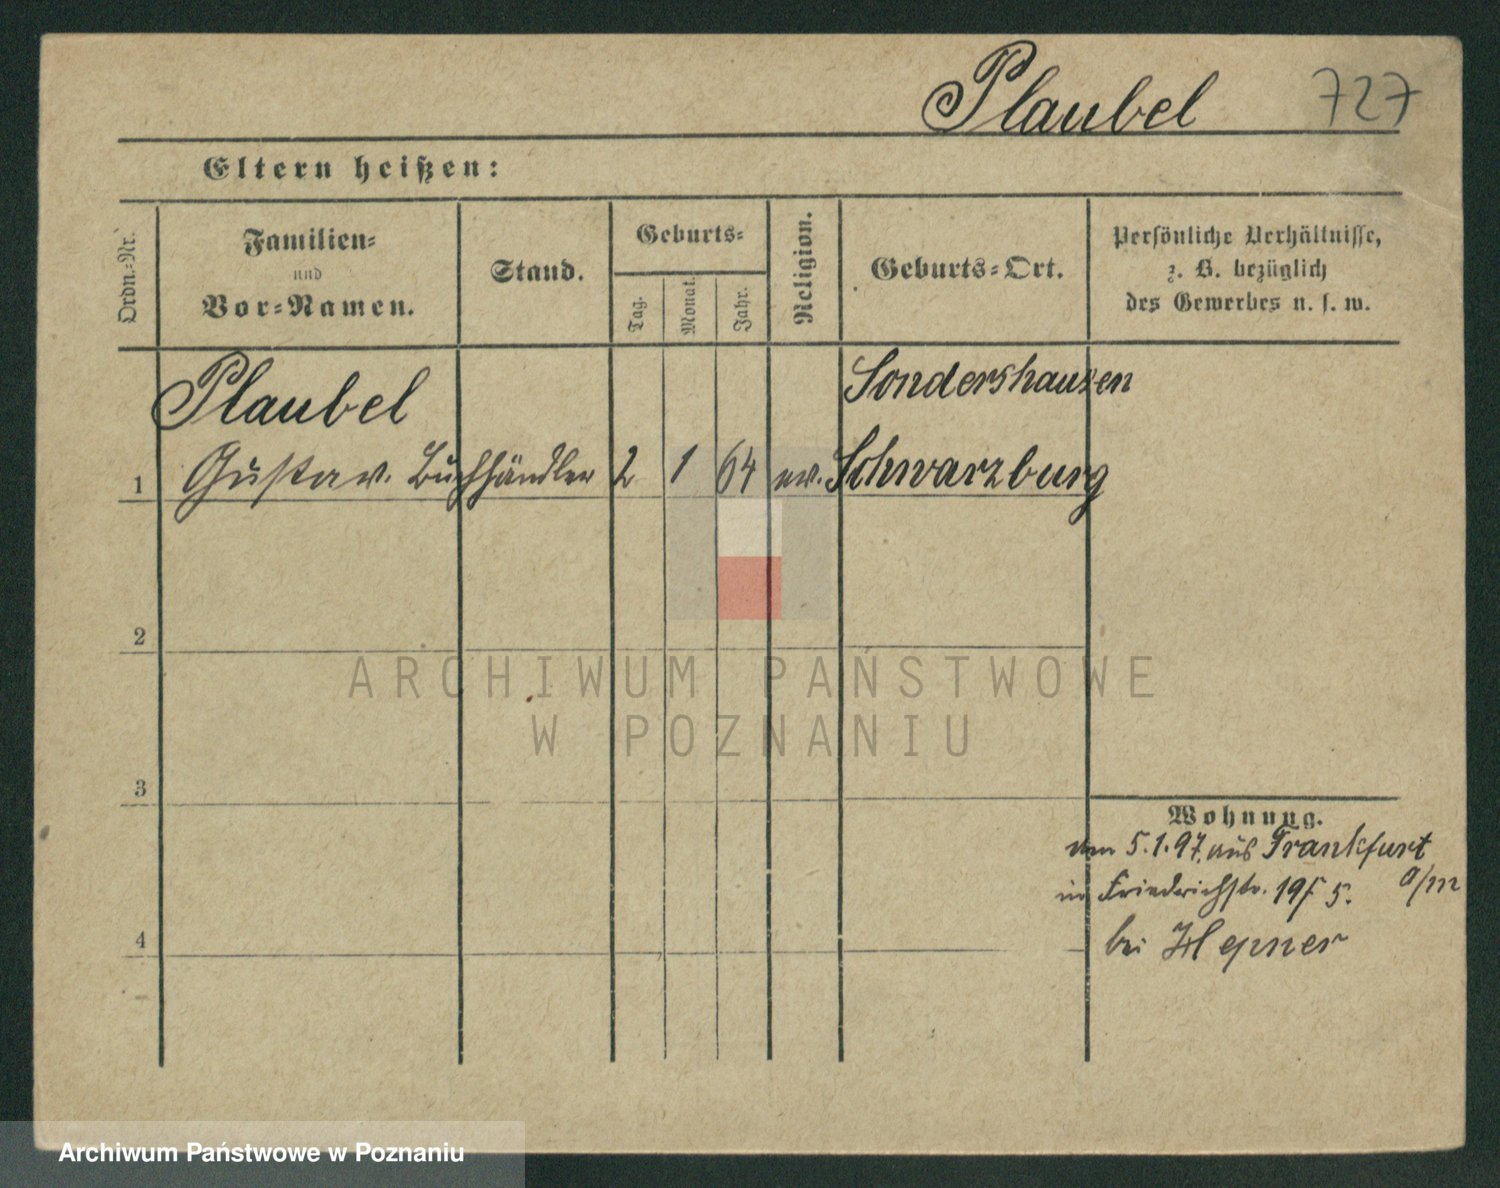 Plaubel 727
Eltern heißen:
Ordn.-Nr.
Familien-
und
Vor-Namen.
Stand.
Geburts-
Tag.
Monat.
Jahr.
Religion.
Geburts-Ort.
Persönliche Verhältnisse,
z. B. bezüglich
des Gewerbes u. s. w.
Plaubel
Sondershausen
1 Gustav. Buchhändler 2 1 64 ev. Schwarzburg
2
ARCHIWUM PAŃSTWOWE
W POZNANIU
3
Wohnung.
am 5.1.97. aus Frankfurt
a/m
in Friedrichstr. 19/ 5.
4
bei Hepner
Archiwum Państwowe w Poznaniu